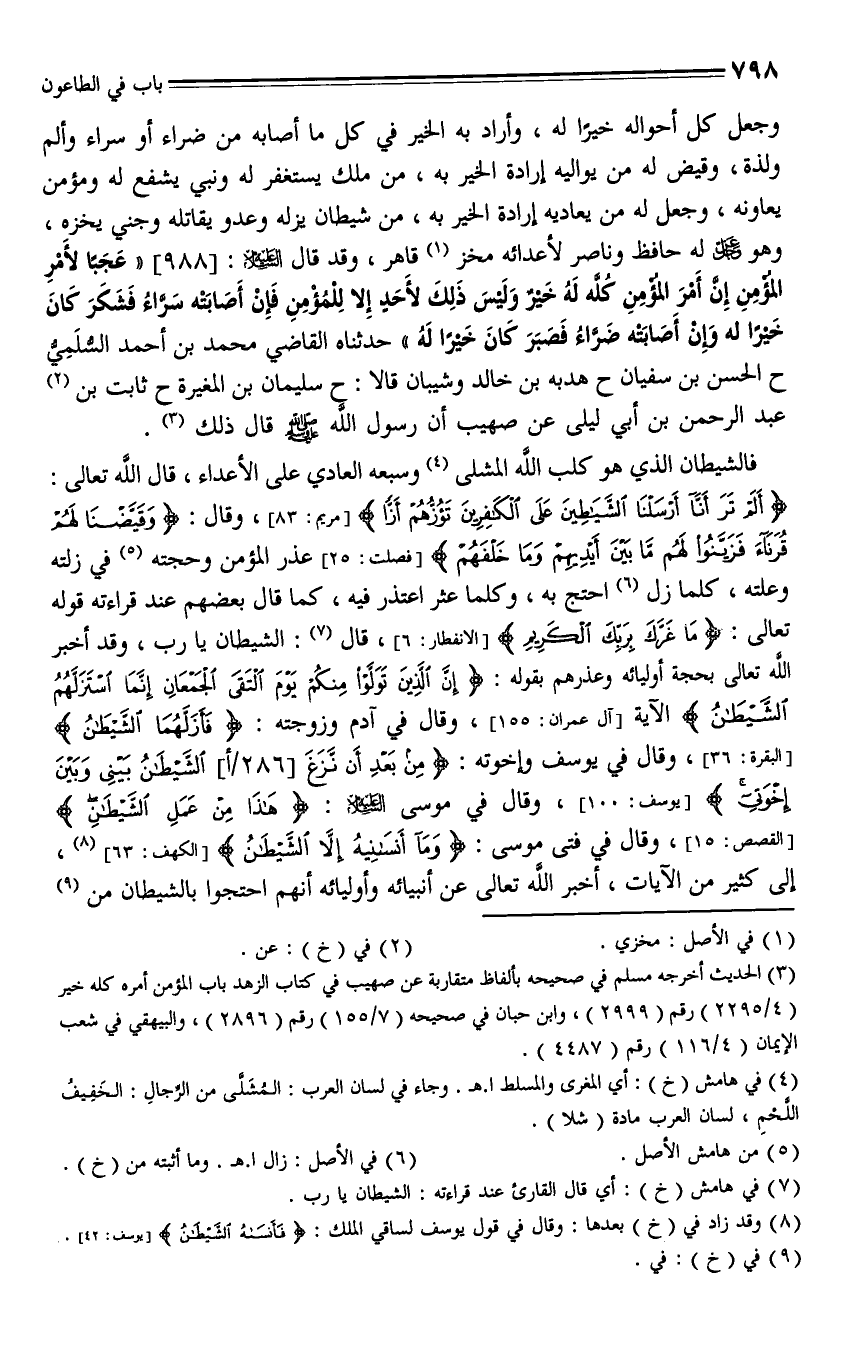 ٧٩٨ باب في الطاعون
وجعل كل أحواله خيرًا له ، وأراد به الخير في كل ما أصابه من ضراء أو سراء وألم
ولذة ، وقيض له من يواليه إرادة الخير به ، من ملك يستغفر له ونبي يشفع له ومؤمن
يعاونه ، وجعل له من يعاديه إرادة الخير به ، من شيطان يزله وعدو يقاتله وجني يخزه ،
وهو ﷻ له حافظ وناصر لأعدائه مخز (١) قاهر ، وقد قال العليه السلام : [٩٨٨] « عَجَبًا لأَمْرِ
المُؤْمِنِ إِنَّ أَمْرَ المُؤْمِنِ كُلَّه لَهُ خَيْرٌ وَلَيْسَ ذَلِكَ لأَحَدٍ إلا لِلْمُؤْمِنِ فَإِنْ أَصَابَتْه سَرَّاءُ فَشَكَرَ كَانَ
خَيْرًا له وَإِنْ أَصَابَتْه ضَرَّاءُ فَصَبَرَ كَانَ خَيْرًا لَهُ » حدثناه القاضي محمد بن أحمد السُّلَمِيُّ
ح الحسن بن سفيان ح هدبه بن خالد وشيبان قالا : ح سليمان بن المغيرة ح ثابت بن (٢)
عبد الرحمن بن أبي ليلى عن صهيب أن رسول اللَّه ﷺ قال ذلك (٣) .
فالشيطان الذي هو كلب اللَّه المشلى (٤) وسبعه العادي على الأعداء ، قال اللَّه تعالى :
﴿ أَلَمْ تَرَ أَنَّآ أَرْسَلْنَا ٱلشَّيَٰطِينَ عَلَى ٱلْكَٰفِرِينَ تَؤُزُّهُمْ أَزًّا ﴾ [مريم : ٨٣] ، وقال : ﴿ وَقَيَّضْنَا لَهُمْ
قُرَنَآءَ فَزَيَّنُوا۟ لَهُم مَّا بَيْنَ أَيْدِيهِمْ وَمَا خَلْفَهُمْ ﴾ [فصلت : ٢٥] عذر المؤمن وحجته (٥) في زلته
وعلته ، كلما زل (٦) احتج به ، وكلما عثر اعتذر فيه ، كما قال بعضهم عند قراءته قوله
تعالى : ﴿ مَا غَرَّكَ بِرَبِّكَ ٱلْكَرِيمِ ﴾ [الانفطار : ٦] ، قال (٧) : الشيطان يا رب ، وقد أخبر
اللَّه تعالى بحجة أوليائه وعذرهم بقوله : ﴿ إِنَّ ٱلَّذِينَ تَوَلَّوْا۟ مِنكُمْ يَوْمَ ٱلْتَقَى ٱلْجَمْعَانِ إِنَّمَا ٱسْتَزَلَّهُمُ
ٱلشَّيْطَٰنُ ﴾ الآية [آل عمران : ١٥٥] ، وقال في آدم وزوجته : ﴿ فَأَزَلَّهُمَا ٱلشَّيْطَٰنُ ﴾
[البقرة : ٣٦] ، وقال في يوسف وإخوته : ﴿ مِنۢ بَعْدِ أَن نَّزَغَ [٢٨٦/أ] ٱلشَّيْطَٰنُ بَيْنِى وَبَيْنَ
إِخْوَتِىٓ ﴾ [يوسف : ١٠٠] ، وقال في موسى العليه السلام : ﴿ هَٰذَا مِنْ عَمَلِ ٱلشَّيْطَٰنِ ﴾
[القصص : ١٥] ، وقال في فتى موسى : ﴿ وَمَآ أَنسَىٰنِيهُ إِلَّا ٱلشَّيْطَٰنُ ﴾ [الكهف : ٦٣] (٨) ،
إلى كثير من الآيات ، أخبر اللَّه تعالى عن أنبيائه وأوليائه أنهم احتجوا بالشيطان من (٩)
(١) في الأصل : مخزي . (٢) في ( خ ) : عن .
(٣) الحديث أخرجه مسلم في صحيحه بألفاظ متقاربة عن صهيب في كتاب الزهد باب المؤمن أمره كله خير
( ٢٢٩٥/٤ ) رقم ( ٢٩٩٩ ) ، وابن حبان في صحيحه ( ١٥٥/٧ ) رقم ( ٢٨٩٦ ) ، والبيهقي في شعب
الإيمان ( ١١٦/٤ ) رقم ( ٤٤٨٧ ) .
(٤) في هامش ( خ ) : أي المغرى والمسلط ا.هـ . وجاء في لسان العرب : المُشَلَّى من الرِّجالِ : الخَفِيفُ
اللَّحْمِ ، لسان العرب مادة ( شلا ) .
(٥) من هامش الأصل . (٦) في الأصل : زال ا.هـ . وما أثبته من ( خ ) .
(٧) في هامش ( خ ) : أي قال القارئ عند قراءته : الشيطان يا رب .
(٨) وقد زاد في ( خ ) بعدها : وقال في قول يوسف لساقي الملك : ﴿ فَأَنسَىٰهُ ٱلشَّيْطَٰنُ ﴾ [يوسف : ٤٢] .
(٩) في ( خ ) : في .